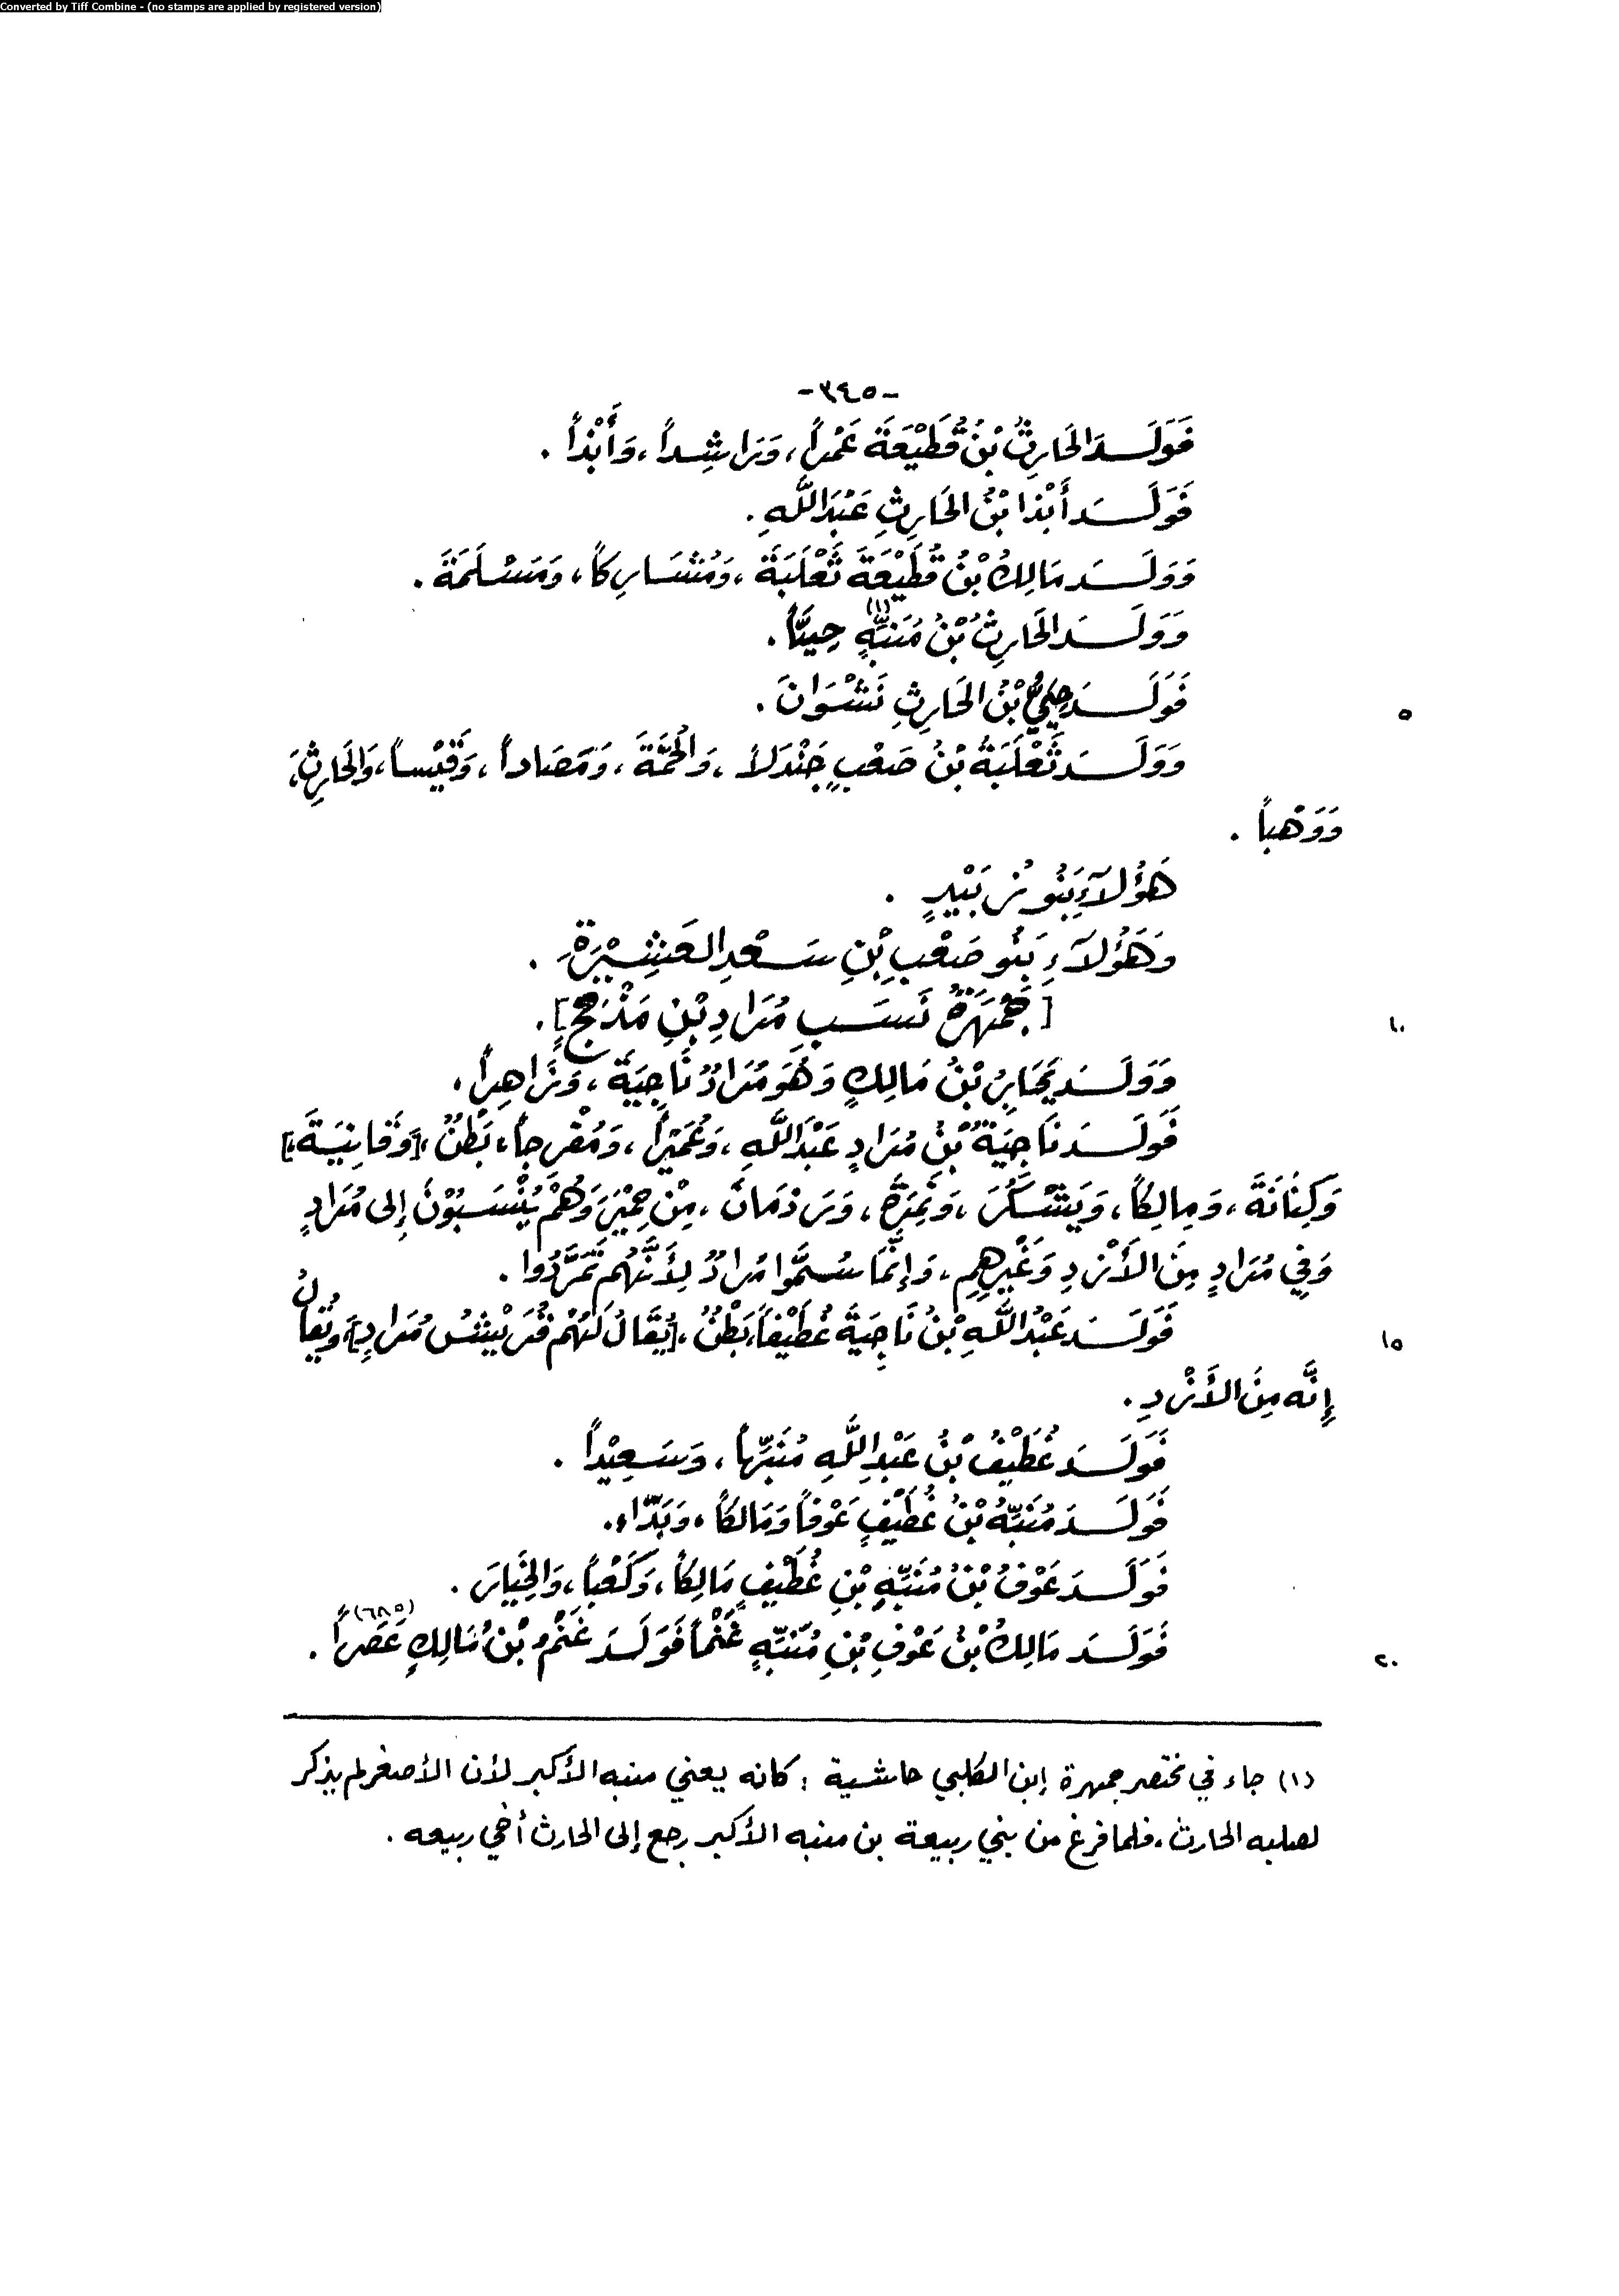 Converted by Tiff Combine - (no stamps are applied by registered version)
-٣٤٥-
فَوَلَدَ الحَارِثُ بْنُ قُطَيْعَةَ عَمْراً، وَرَاشِداً، وَأَبْذاً .
فَوَلَدَ أَبْذَا بْنُ الحَارِثِ عَبْدَاللَّهِ .
وَوَلَدَ مَالِكُ بْنُ قُطَيْعَةَ ثَعْلَبَةَ ، وَمُشَارِكاً، وَمَسْلَمَةَ .
وَوَلَدَ الحَارِثُ بْنُ مُنَبِّهٍ (١) حِيَيّاً .
فَوَلَدَ حِيَيُّ بْنُ الحَارِثِ نَشْوَانَ .
٥
وَوَلَدَ ثَعْلَبَةُ بْنُ صَعْبٍ جَنْدَلاً ، وَالحُمَّةَ ، وَمَصَاداً ، وَقَيْساً، وَالحَارِثَ،
وَوَهْباً .
هَؤُلآءِ بَنُو زُبَيْدٍ .
وَهَؤُلآءِ بَنُو صَعْبِ بْنِ سَعْدِ العَشِيْرَةِ .
[جَمْهَرَةُ نَسَبِ مُرَادِ بْنِ مَذْحِجٍ] .
١٠
وَوَلَدَ يَحَابِرُ بْنُ مَالِكٍ وَهُوَ مُرَادٌ نَاجِيَةَ ، وَزَاهِراً .
فَوَلَدَ نَاجِيَةُ بْنُ مُرَادٍ عَبْدَاللَّهِ ، وَعُمَيْراً ، وَمُفْرِجاً، بَطْنٌ ، [وَقَانِيَةَ،]
وَكِنَانَةَ ، وَمَالِكاً، وَيَشْكُرَ ، وَنَمِرَةَ ، وَرَدْمَانَ ، مِنْ حِمْيَرَ وَهُمْ يُنْسَبُوْنَ إِلى مُرَادٍ
وَفِي مُرَادٍ مِنَ الأَزْدِ وَغَيْرِهِمِ ، وَإِنَّمَا سُمَّوا مُرَادٌ لِأَنَّهُم تَمَرَّدُوا .
فَوَلَدَ عَبْدُاللَّهِ بْنُ نَاجِيَةَ غُطَيْفاً، بَطْنٌ ، [يُقَالُ لَهُمْ قُرَيْشُ مُرَادٍ،] وَيُقَالُ
١٥
إِنَّه مِنَ الأَزْدِ .
فَوَلَدَ غُطَيْفُ بْنُ عَبْدِاللَّهِ مُنَبِّهاً ، وَسَعِيْداً .
فَوَلَدَ مُنَبِّهُ بْنُ غُطَيْفٍ عَوْفاً وَمَالكاً ، وَبَدَّاء .
فَوَلَدَ عَوْفُ بْنُ مُنَبِّهِ بْنِ غُطَيْفٍ مَالِكاً ، وَكَعْباً ، وَالخِيَارَ .
فَوَلَدَ مَالِكُ بْنُ عَوْفِ بْنِ مُنَبِّهٍ غَنْماً فَوَلَدَ غَنْمُ بْنُ مَالِكٍ عَصَراً (٦٨٥) .
٢٠
(١) جاء في مختصر جمهرة إبن الكلبي حاشية : كانه يعني منبه الأكبر لأن الأصغر لم يذكر
لصلبه الحارث ، فلما فرغ من بني ربيعة بن منبه الأكبر رجع إلى الحارث أخي ربيعه .